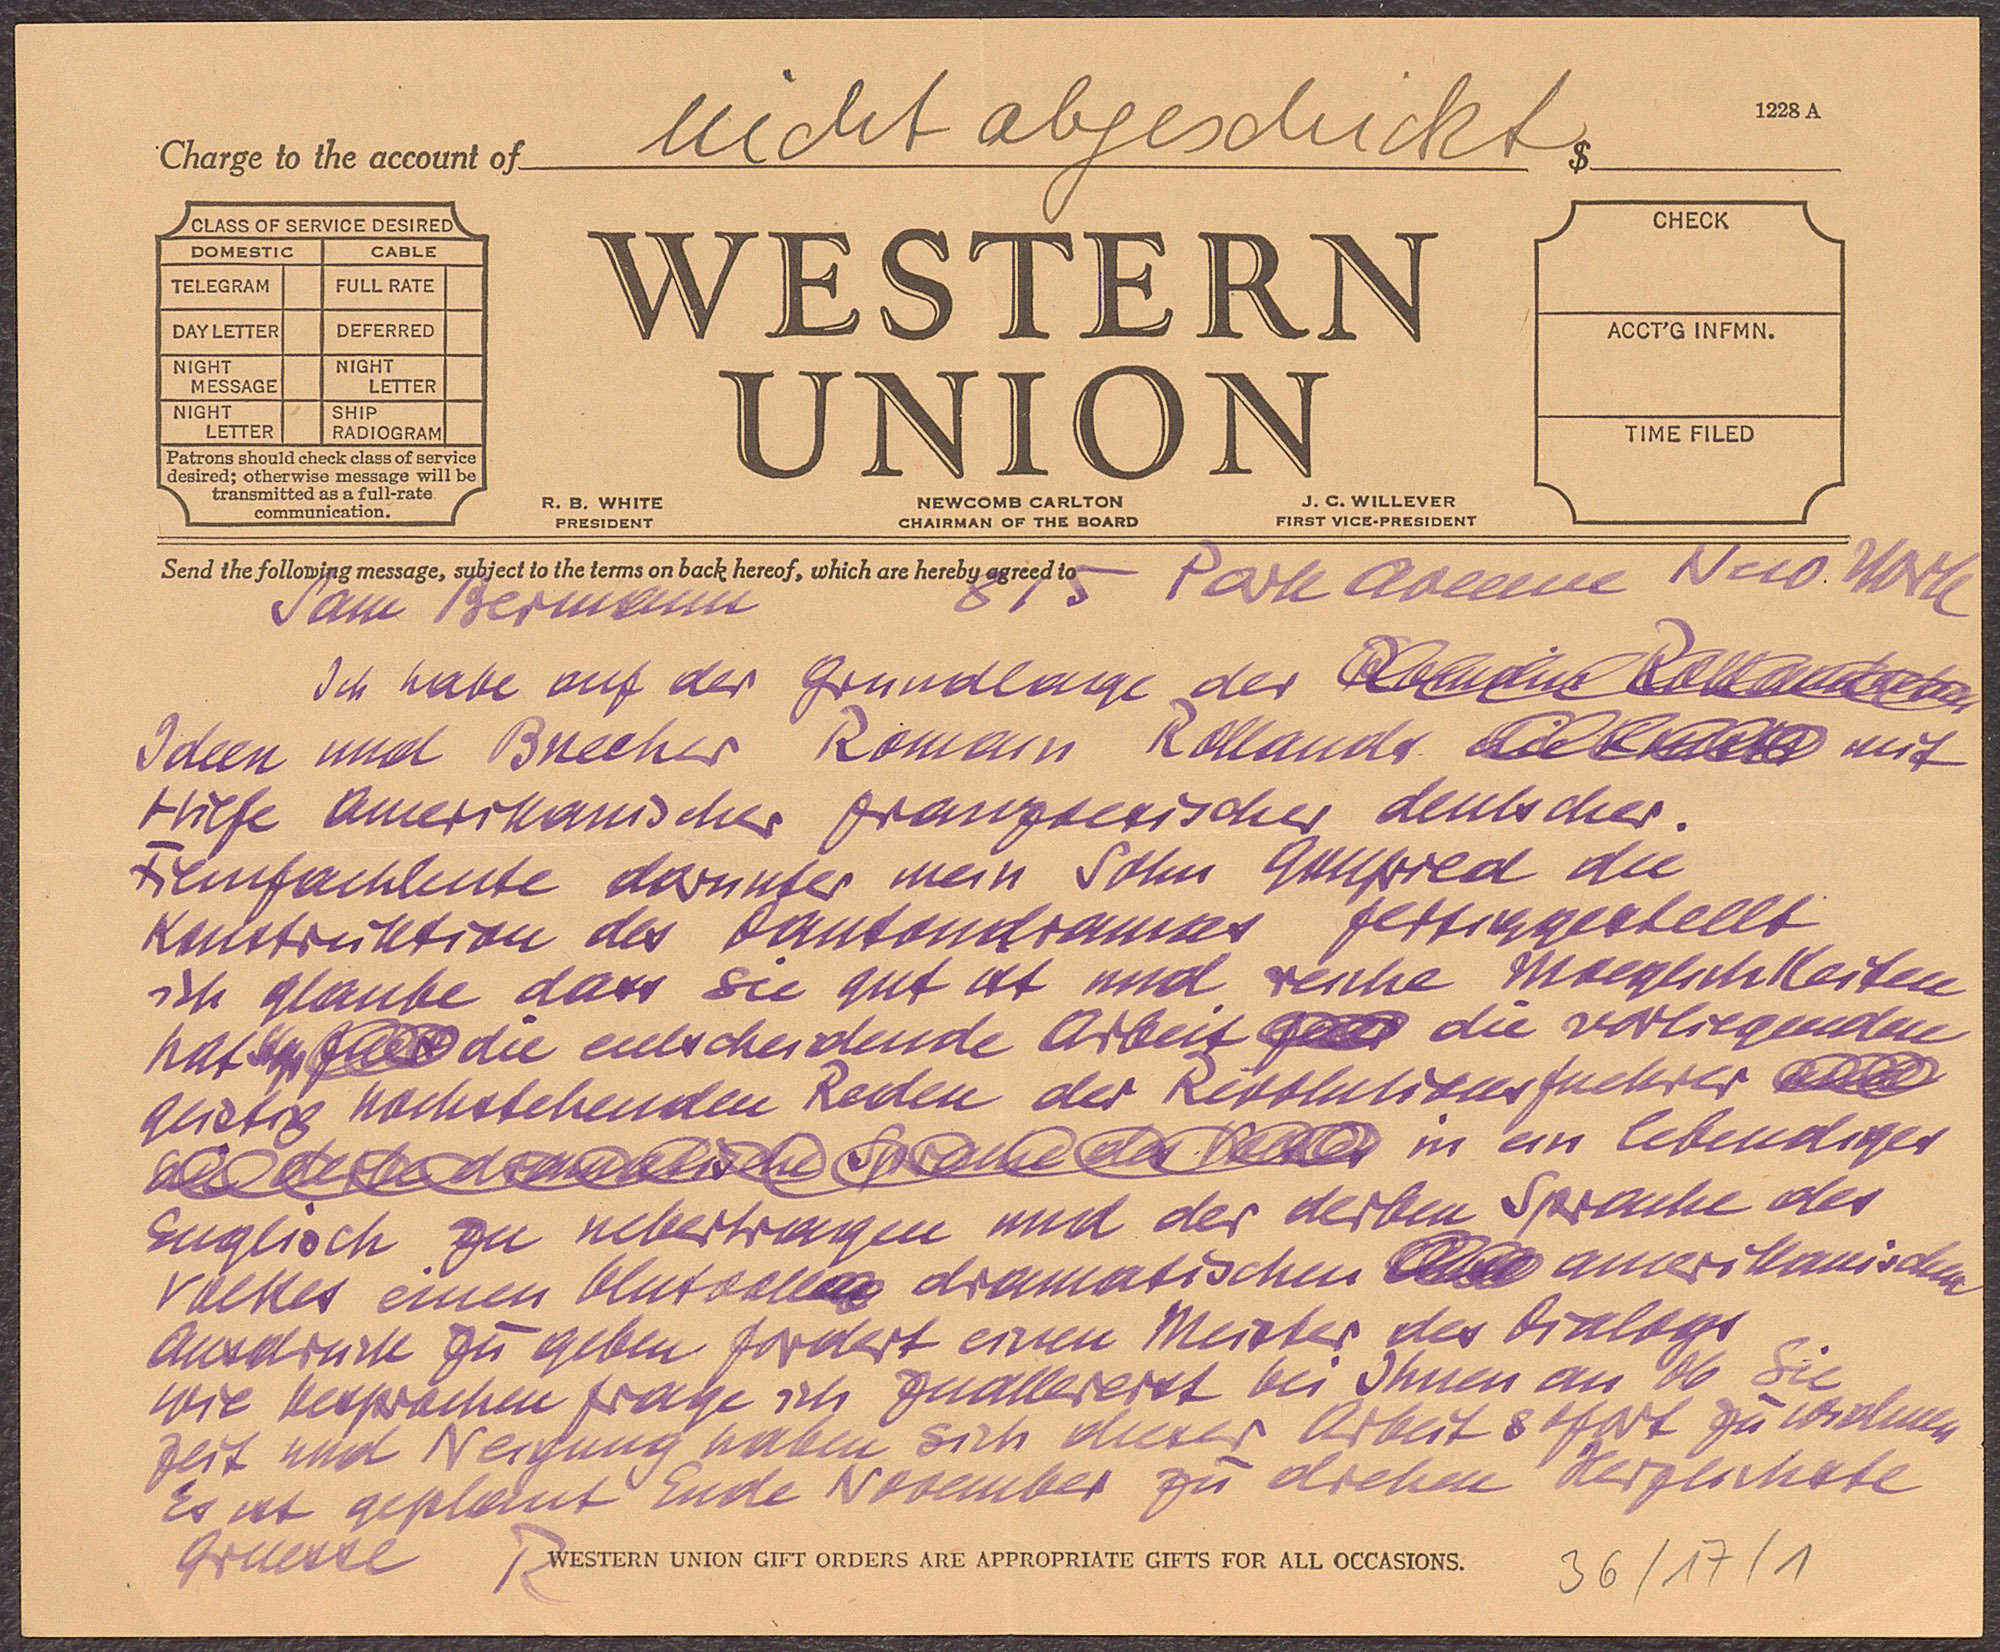 nicht abgeschickt
1228 A
Charge to the account of $
CLASS OF SERVICE DESIRED
DOMESTIC CABLE
TELEGRAM FULL RATE
DAY LETTER DEFERRED
NIGHT MESSAGE NIGHT LETTER
NIGHT LETTER SHIP RADIOGRAM
Patrons should check class of service
desired; otherwise message will be
transmitted as a full-rate
communication.
WESTERN
UNION
R. B. WHITE
PRESIDENT
NEWCOMB CARLTON
CHAIRMAN OF THE BOARD
J. C. WILLEVER
FIRST VICE-PRESIDENT
CHECK
ACCT'G INFMN.
TIME FILED
Send the following message, subject to the terms on back hereof, which are hereby agreed to
Sam Bermann 875 Park Avenue New York
Ich habe auf der Grundlage der
Ideen und Buecher Romain Rollands mit
Hilfe amerikanischer franzoesischer deutscher.
Filmfachleute darunter mein Sohn Gottfried die
Konstruktion des Dantondramas fertiggestellt
ich glaube dass sie gut ist und reiche Moeglichkeiten
hat die entscheidende Arbeit die vorliegenden
geistig hochstehenden Reden der Revolutionsfuehrer
in ein lebendiges
Englisch zu uebertragen und der derben Sprache des
Volkes einen blutvollen dramatischen amerikanischen
Ausdruck zu geben fordert einen Meister des Dialogs
wie besprochen frage ich zuallererst bei Ihnen an ob Sie
Zeit und Neigung haben sich dieser Arbeit sofort zu widmen
Es ist geplant Ende November zu drehen Herzlichste
Gruesse R
WESTERN UNION GIFT ORDERS ARE APPROPRIATE GIFTS FOR ALL OCCASIONS.
36/17/1